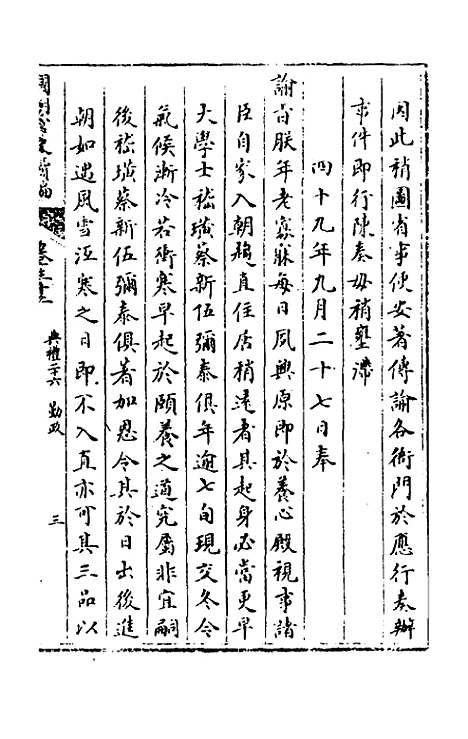 因此稍圖省事使安著傳諭各衙門於應行奏辦
事件即行陳奏毋稍壅滯
四十九年九月二十七日奉
諭旨朕年老寡寐每日夙興原即於養心殿視事諸
臣自家入朝趨直住居稍遠者其起身必當更早
大學士嵇璜蔡新伍彌泰俱年逾七旬現交冬令
氣候漸冷若衝寒早起於頤養之道究屬非宜嗣
後嵇璜蔡新伍彌泰俱著加恩令其於日出後進
朝如遇風雪冱寒之日即不入直亦可其三品以
國朝宮史續編
卷三十三
典禮二十六 勤政
三